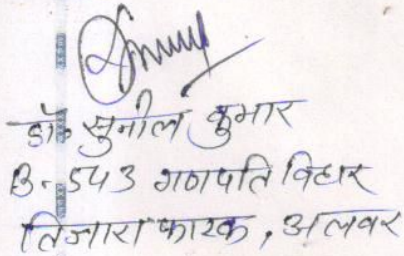 डॉ॰ सुनील कुमार
B-543 गणपति विहार
तिजारा फाटक, अलवर